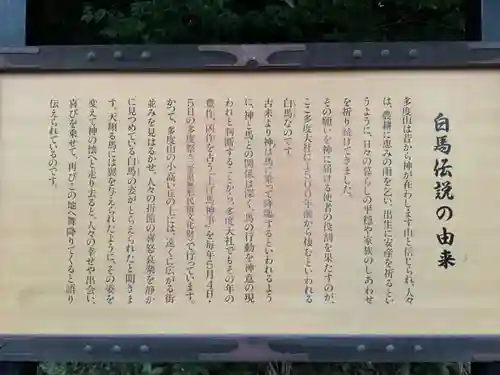 白馬伝説の由来
多度山は昔から神が在わします山と信じられ、人々
は、農耕に恵みの雨を乞い、出生に安産を祈るとい
うように、日々の暮らしの平穏や家族のしあわせ
を祈り続けてきました。
その願いを神に届ける使者の役割を果たすのが、
ここ多度大社に1500年前から棲むといわれる
白馬なのです。
古来より神は馬に乗って降臨するといわれるよう
に、神と馬との関係は深く、馬の行動を神意の現
われと判断することから、多度大社でもその年の
豊作、凶作を占う「上げ馬神事」を毎年5月4日・
5日の多度祭(三重県無形民俗文化財)で行っています。
かつて、多度山の小高い丘の上には、遠くに広がる街
並みを見はるかせ、人々の折節の喜怒哀楽を静か
に見つめている白馬の姿がとらえられたと聞きま
す。天翔る馬には翼が与えられたように、その姿を
変えて神の懐へと走り去ると、人々の幸せや出会い、
喜びを乗せて、再びこの地へ舞降りてくると語り
伝えられているのです。